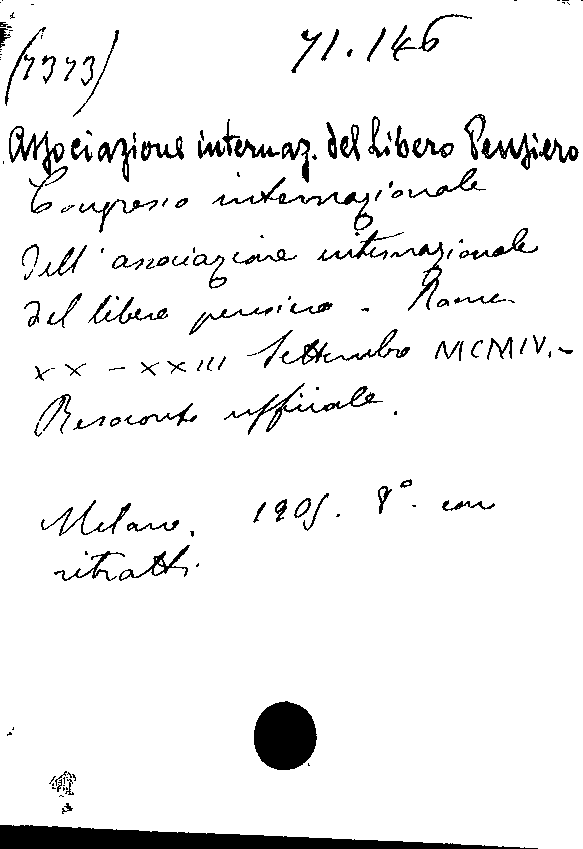 (7373) 71.146
Associazione internaz. del Libero Pensiero
Congresso internazionale
dell'associazione internazionale
del libero pensiero - Roma
XX - XXIII Settembre MCMIV.-
Resoconto ufficiale.
Milano. 1905. 8°. con
ritratti.